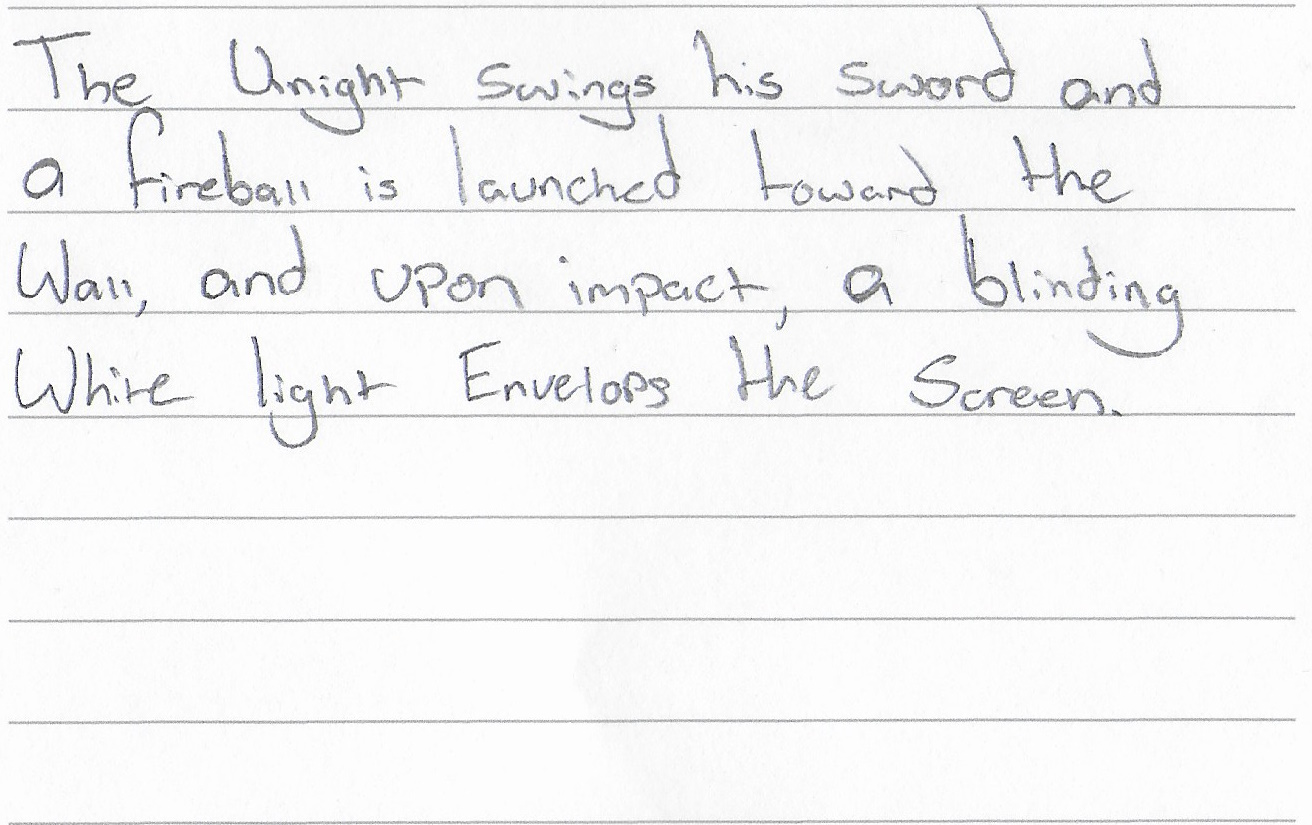 The Unight swings his sword and
a fireball is launched toward the
Wall, and upon impact, a blinding
White light Envelops the Screen.